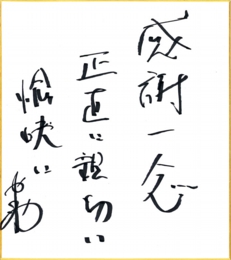 感謝一念
正直に親切に
愉快に